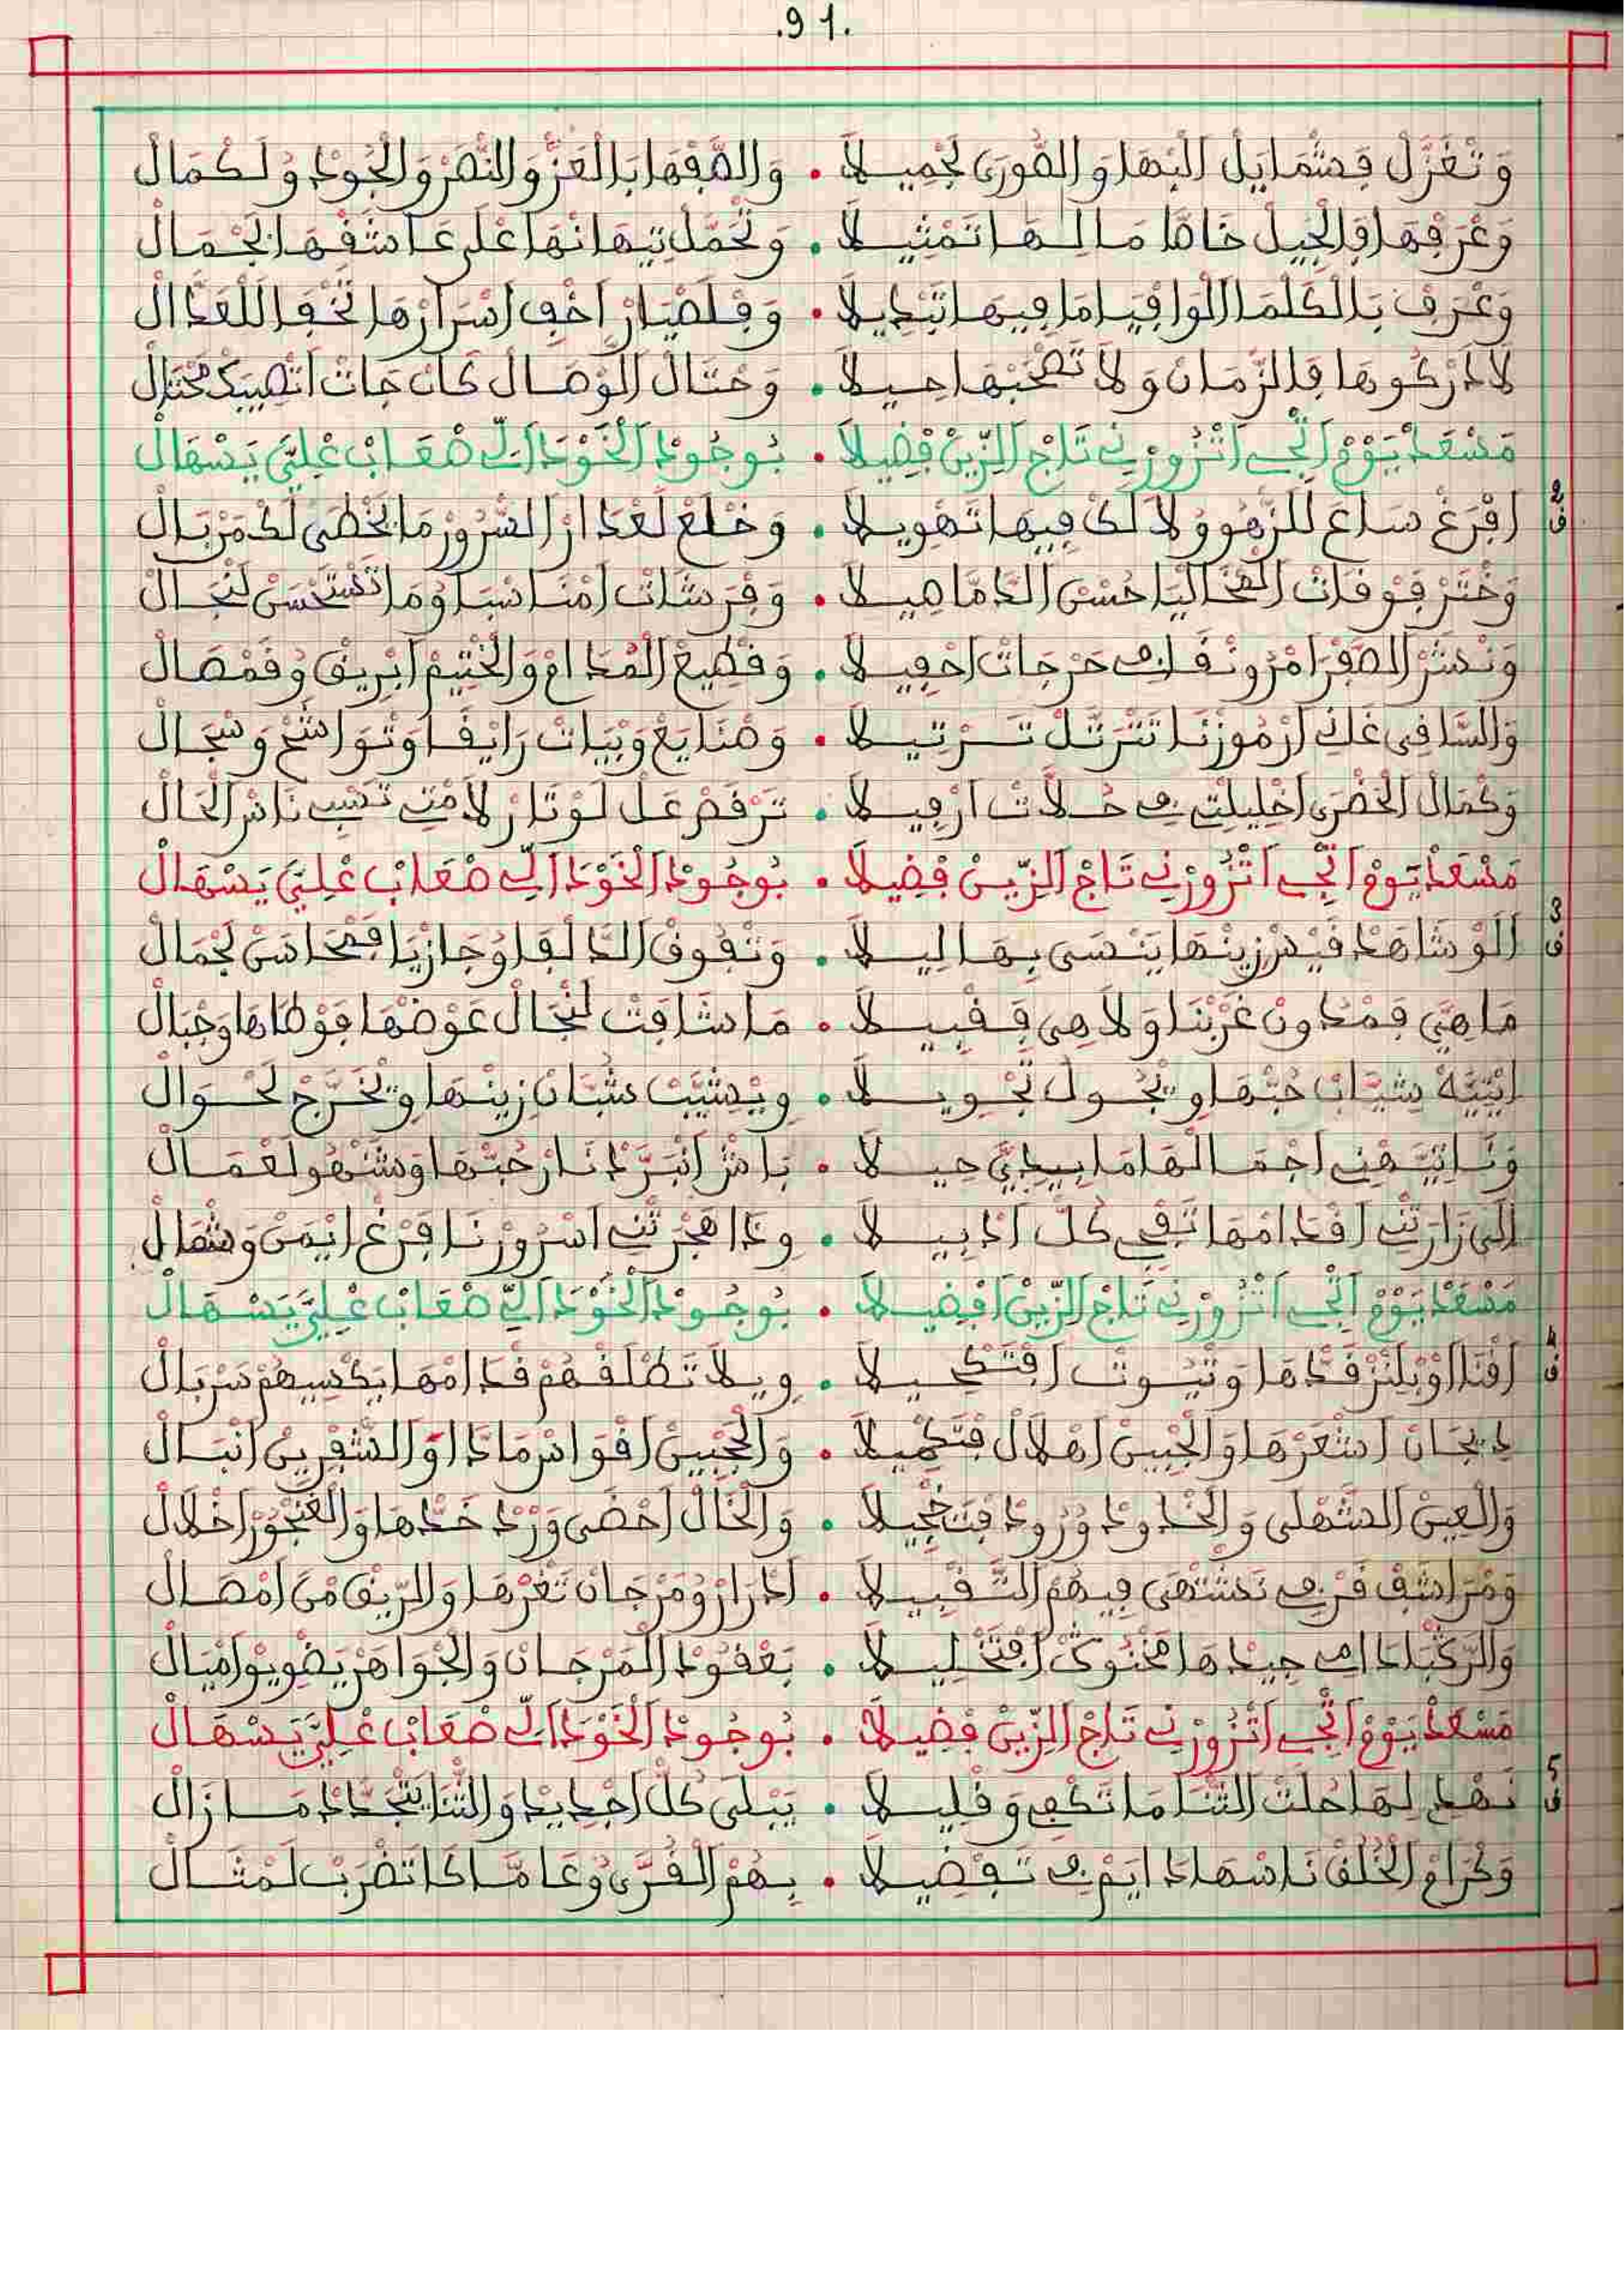 .91.
وَتْغَزَّلْ فَشْمَايَلْ الْبْهَا وَالصُّورَى لَجْمِيلَا • وَالصَّفْهَا بَالْعَزّْ وَالنَّصْرْ وَالْجُودْ وُلَكْمَالْ
وَعْرَفْهَا فَالْجِيلْ خَاصَّا مَا لِهَا تَمْثِيلَا • وَتْحَمَّلْ تِيهَانْهَا عْلَى عَاشَقْهَا بَجْمَالْ
وَعْرَفْ بَالْكَلْمَا الْوَافْيَا مَا فِيهَا تَبْدِيلَا • وَقْلَصْيَارْ اخْفِ اسْرَارْهَا تَخْفَى اللْعَدَّالْ
لَا ادَرْكُوهَا فَالزّْمَانْ وَلَا تَصْحَبْهَا حِيلَا • وَحْتَالْ الْوْصَالْ كَانْ جَاتْ اتْصِيبَكْ مُحْتَالْ
مَسْعَدْ يَوْمْ اتْجِي اتْزُورْنِي تَاجْ الزِّينْ فْضِيلَا • بُوجُودْ الْخَوْدَا الِّي صْعَابْ عْلِيَّ يَسْهَالْ
ف2 افْرَغْ سَاعَ للزّْهُو وُلَا لَكْ فِيهَا تَهْوِيلَا • وَخْلَعْ لَعْدَارْ السّْرُورْ مَا يَخْطَى لَكْ مَنْ بَالْ
وَخْتَرْ فَوْقَاتْ الْهْنَا لِيَا حُسْنْ الدَّامَا هِيلَا • وَفْرَشَاتْ امْنَاسْبَا وُمَا تَسْتَحْسَنْ لَنْجَالْ
وَنْشَرْ الصَّفْرَا مْرَوْنْقَا فِي حَرْجَاتْ احْفِيلَا • وَقْطِيعْ الْمْدَامْ وَالْخْتِيمْ ابْرِيقْ وُقَمْصَالْ
وَالسَّاقِي غَانِي ارْمُوزْنَا تَتْرَتَّلْ تَرْتِيلَا • وَصْنَايَعْ وَبْيَاتْ رَايْقَا وَتْوَاشَحْ وَسْجَالْ
وَكْمَالْ الْحَضْرَى اخْلِيلْتِي فِي حُلَّاتْ ارْفِيلَا • تَرْقَصْ عَلْ لَوْتَارْ لَامْتِي تَسْبِي نَاسْ الْحَالْ
مَسْعَدْ يَوْمْ اتْجِي اتْزُورْنِي تَاجْ الزِّينْ فْضِيلَا • بُوجُودْ الْخَوْدَا الِّي صْعَابْ عْلِيَّ يَسْهَالْ
ف3 الَوْ شَاهَدْ قَيْسْ زِينْهَا يَنْسَى بِهَا لِيلَا • وَتْفُوقْ الدَّالْفَا وُجَازْيَا فَمْحَاسَنْ لَجْمَالْ
مَا هِيَّ فَمْدُونْ غَرْبْنَا وَلَا هِي فَقْبِيلَا • مَا شَافَتْ لَنْجَالْ عَوْضْهَا فَوْطَاهَا وَجْبَالْ
ايْتِيَّهْ شِيَّابْ حُبّْهَا وِيجُولْ تَجْوِيلَا • وِيْشِيَّبْ شُبَّانْ زِينْهَا وِيْخَرَّجْ لَحْوَالْ
وَنَا تِيَّهْنِي اجْمَالْهَا مَا بِيدِيَّ حِيلَا • بَاشْ انْبَرَّدْ نَارْ حُبّْهَا وَشْهُو لَعْمَالْ
الَى زَارَتْنِي اقْدَامْهَا تَفْجِي كُلّْ ادْبِيلَا • وِذَا هَجْرَتْنِي اسْرُورْنَا فَرْغْ ايْمَنْ وَشْمَالْ
مَسْعَدْ يَوْمْ اتْجِي اتْزُورْنِي تَاجْ الزِّينْ افْضِيلَا • بُوجُودْ الْخَوْدَا الِّي صْعَابْ عْلِيَّ يَسْهَالْ
ف4 افْنَا اوْبْلَنْزْ قَدّْهَا وَتْيُوتْ افْتَكْحِيلَا • وِيلَا تَطْلَقْهُمْ قْدَامْهَا يَكْسِيهُمْ سَرْبَالْ
دِيجَانْ اشْعَرْهَا وَالْجْبِينْ اهْلَالْ فْتَكْمِيلَا • وَالْحَجْبِينْ اقْوَاسْ مَادَّا اوْ الشّْفَرِينْ انْبَالْ
وَالْعِينْ الشَّهْلَى وَالْخْدُودْ وُرُودْ فْتَخْجِيلَا • وَالْخَالْ احْضَى وَرْدْ خَدّْهَا وَالْغَنْجُورْ اخْلَالْ
وَمْرَاشَفْ قَرْفِي نَشْتَهَى فِيهُمْ التَّقْبِيلَا • ادْرَارْ وُمَرْجَانْ تَغْرْهَا وَالرِّيقْ مْنْ امْصَالْ
وَالرَّكْبَا دَامِي جِيدْهَا مَحْنُوكَشْ افْتَخْلِيلَا • بَعْقُودْ الْمَرْجَانْ وَالْجْوَاهَرْ يَضْوِيوْ امْيَالْ
مَسْعَدْ يَوْمْ اتْجِي اتْزُورْنِي تَاجْ الزِّينْ فْضِيلَا • بُوجُودْ الْخَوْدَا الِّي صْعَابْ عْلِيَّ يَسْهَالْ
ف5 نَهْدِي لِهَا حُلَّتْ الثّْنَا مَا تَكْفِي وَقْلِيلَا • يَبْلَى كُلّْ اجْدِيدْ وَالثّْنَا يَتْجَدَّدْ مَا زَالْ
وَكْرَامْ الْخُلْقْ نَاسْهَا دَايَمْ فِي تَفْضِيلَا • بِهُمْ الْفُرَّى وُعَامَّا كَا تَضْرَبْ لَمْثَالْ